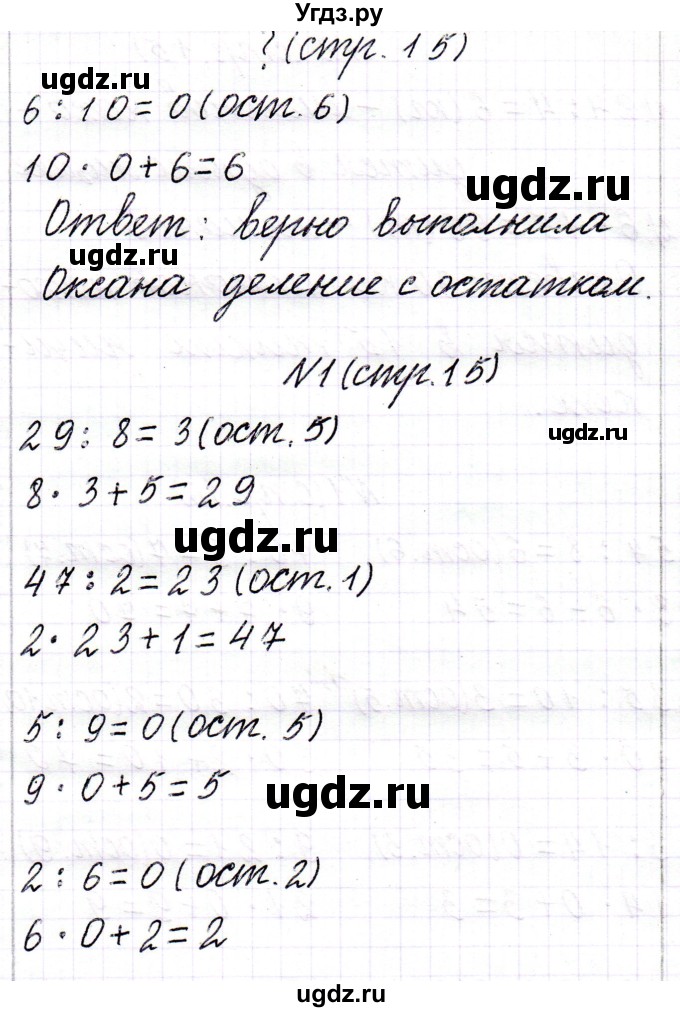 Угдз.ру
?(стр. 15)
ugdz.ru
6 : 10 = 0 (ост. 6)
10 · 0 + 6 = 6
ugdz.ru
Ответ: верно выполнила
ugdz.ru
Оксана деление с остатком.
№1 (стр. 15)
29 : 8 = 3 (ост. 5)
ugdz.ru
8 · 3 + 5 = 29
ugdz.ru
47 : 2 = 23 (ост. 1)
2 · 23 + 1 = 47
5 : 9 = 0 (ост. 5)
9 · 0 + 5 = 5
ugdz.ru
2 : 6 = 0 (ост. 2)
6 · 0 + 2 = 2
ugdz.ru